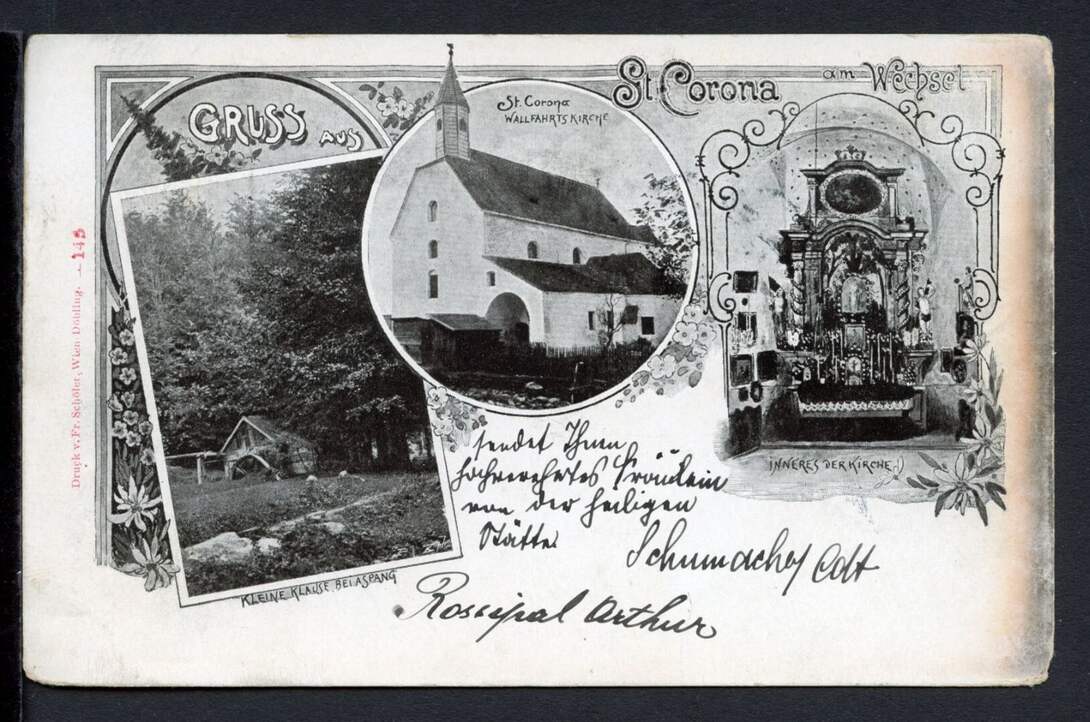 GRUSS AUS
St. Corona am Wechsel
St. Corona
WALLFAHRTSKIRCHE
INNERES DER KIRCHE
KLEINE KLAUSE BEI ASPANG
Druck v. Fr. Schöler, Wien-Döbling. — 145
sendet Ihnen
hochverehrtes Fräulein
von der heiligen
Stätte
Schumacher Cdt
Rossipal Arthur